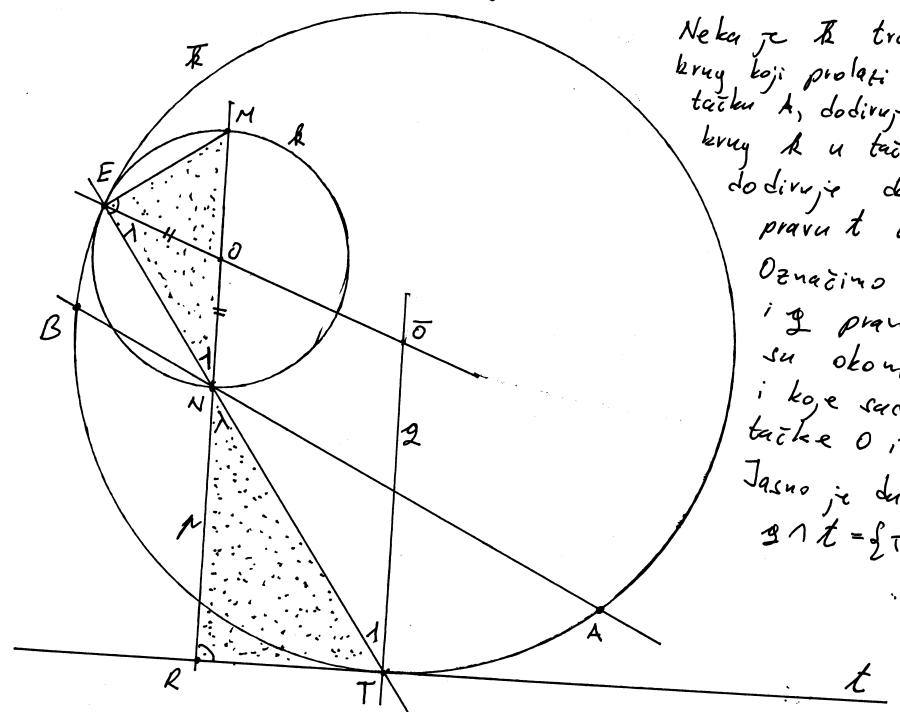 Neka je k̄
krug koji prolazi
tačku A, dodiruj
krug k u tač
dodiruje
pravu t
Označimo
i q prav
su okom
i koje sad
tačke O i
Jasno je da
q ∩ t = {T
k̄
M
k
E
λ
O
Ō
B
λ
N
λ
q
p
λ
A
R
T
t